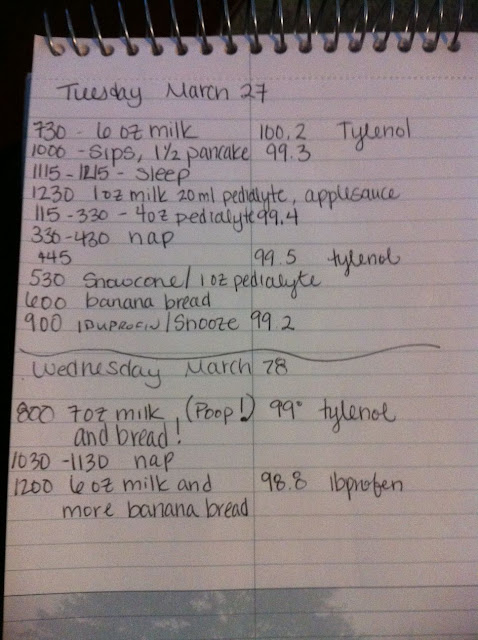 Tuesday March 27
730 - 6 oz milk 100.2 Tylenol
1000 - Sips, 1 1/2 pancake 99.3
1115 - 1215 - sleep
1230 1 oz milk 20 ml pedialyte, applesauce
115 - 330 - 4 oz pedialyte 99.4
330-430 nap
445 99.5 tylenol
530 Snowcone / 1 oz pedialyte
600 banana bread
900 IBUPROFIN / Snooze 99.2
Wednesday March 28
800 7oz milk (Poop!) 99° tylenol
and bread!
1030 -1130 nap
1200 6 oz milk and 98.8 Ibprofen
more banana bread